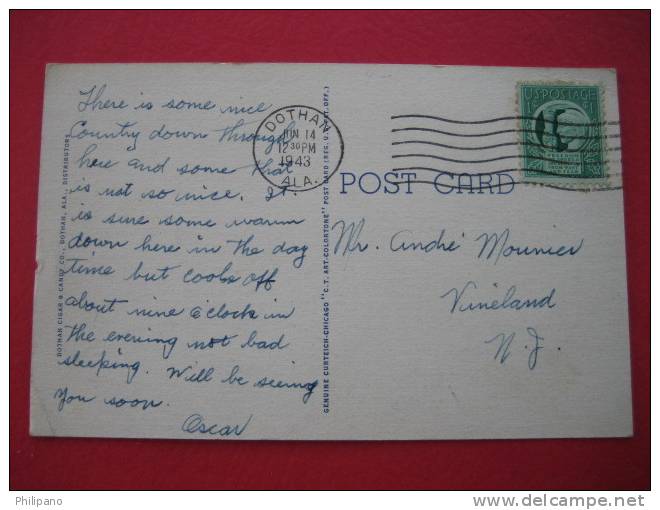 There is some nice
Country down through
here and some that
is not so nice. It.
is sure some warm
down here in the day
time but cools off
about nine o'clock in
the evening not bad
sleeping. Will be seeing
you soon.
Oscar
DOTHAN CIGAR & CANDY CO., DOTHAN, ALA., DISTRIBUTORS
GENUINE CURTEICH-CHICAGO "C.T. ART-COLORTONE" POST CARD (REG. U.S. PAT. OFF.)
DOTHAN
JUN 14
12 30 PM
1943
ALA.
U.S. POSTAGE
1¢ 1¢
POST CARD
Mr. André Mounier
Vineland
N.J.
Philipano
www.delcampe.net